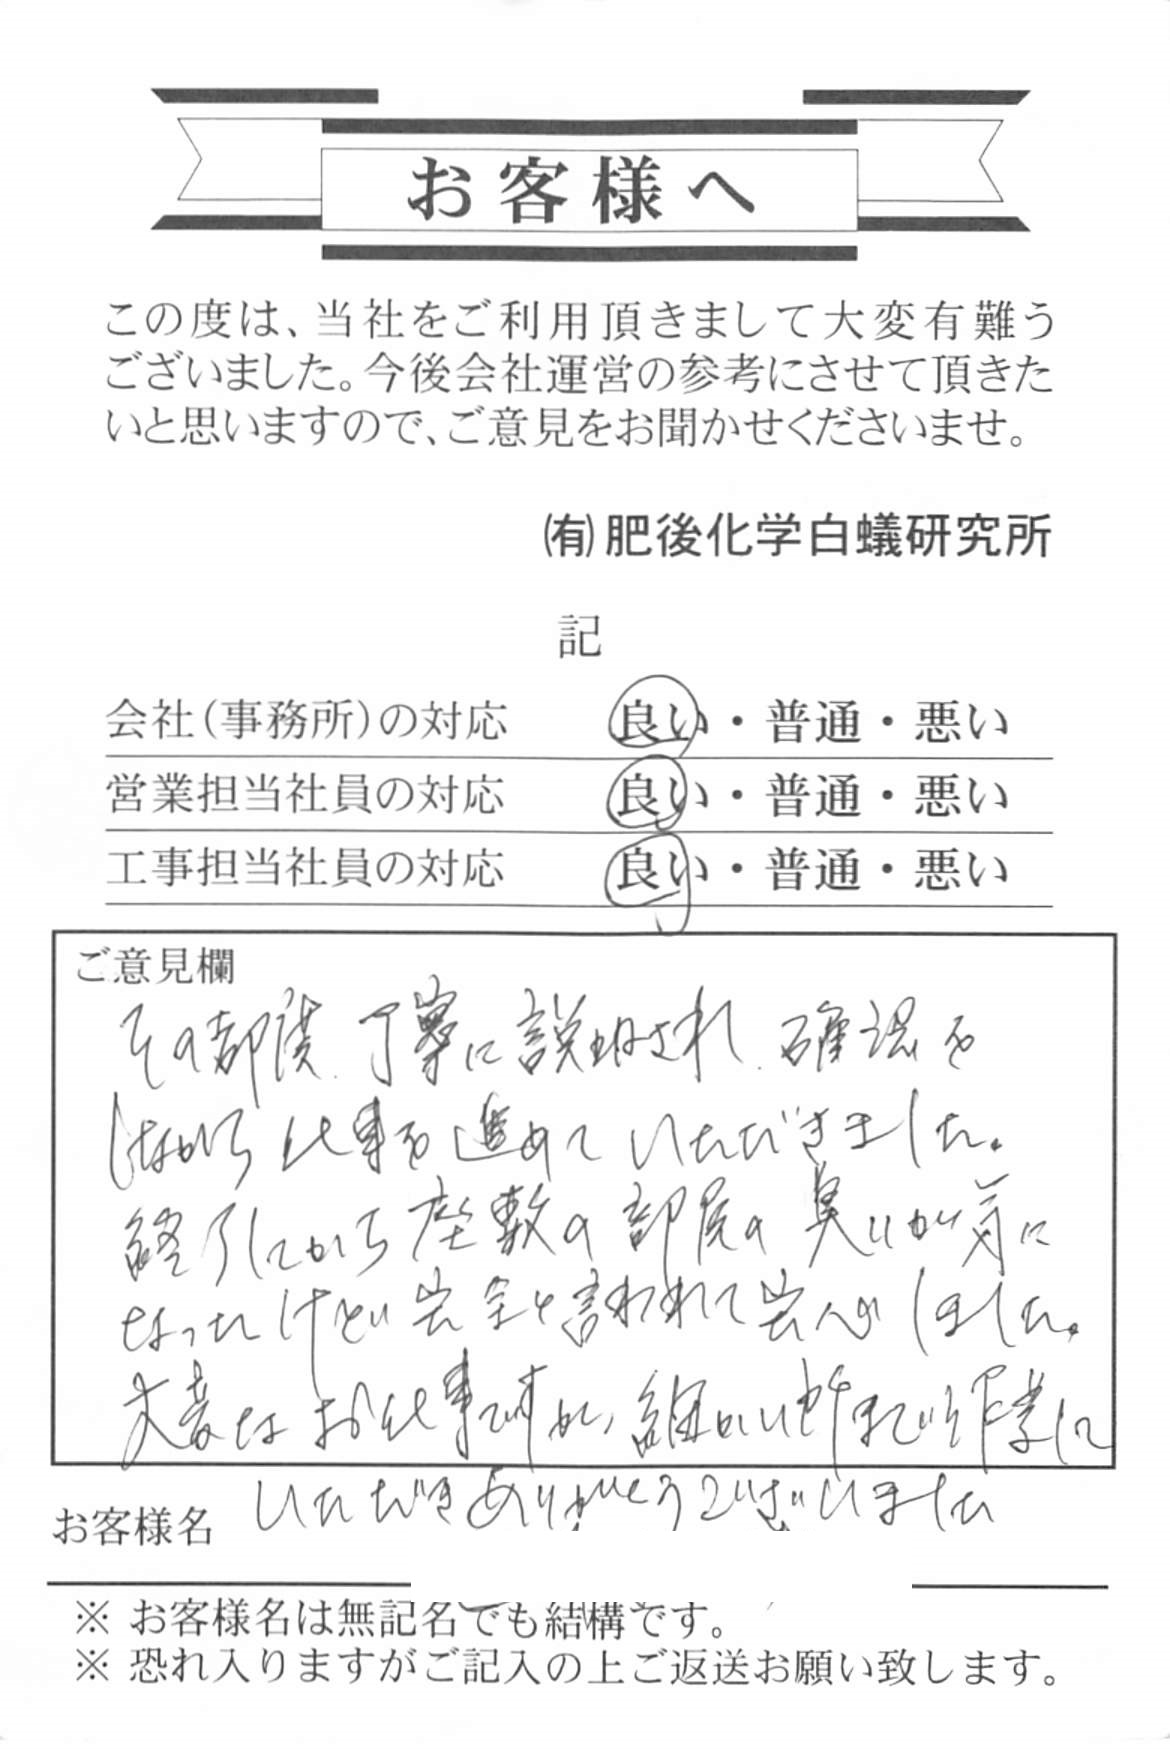 お客様へ
この度は、当社をご利用頂きまして大変有難う
ございました。今後会社運営の参考にさせて頂きた
いと思いますので、ご意見をお聞かせくださいませ。
㈲肥後化学白蟻研究所
記
会社（事務所）の対応 良い・普通・悪い
営業担当社員の対応 良い・普通・悪い
工事担当社員の対応 良い・普通・悪い
ご意見欄
その都度、丁寧に説明され、確認を
しながら仕事を進めていただきました。
終了してから座敷の部屋の臭いが気に
なったけど安全と言われて安心しました。
大変なお仕事ですが、細かい所まで作業して
いただきありがとうございました
お客様名
※ お客様名は無記名でも結構です。
※ 恐れ入りますがご記入の上ご返送お願い致します。